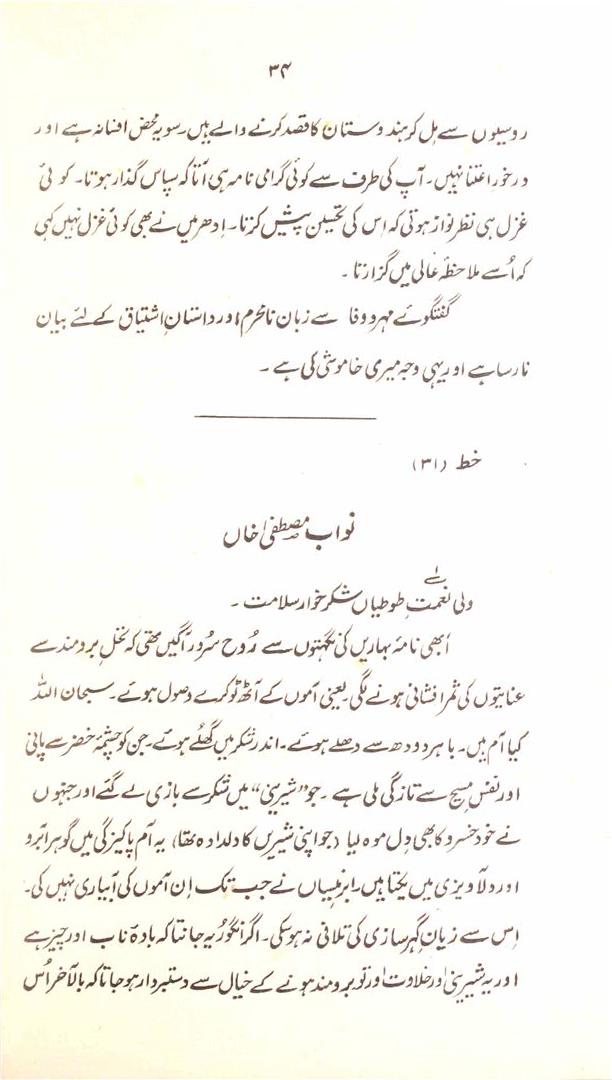 ۳۴
روسیوں سے مِل کر ہندوستان کا قصد کرنے والے ہیں۔ سو یہ محض افسانہ ہے اور
درخورِ اعتنا نہیں۔ آپ کی طرف سے کوئی گرامی نامہ ہی آتا کہ سپاس گذار ہوتا۔ کوئی
غزل ہی نظر نواز ہوتی کہ اس کی تحسین پیش کرتا۔ اِدھر میں نے بھی کوئی غزل نہیں کہی
کہ اُسے ملاحظۂ عالی میں گزارتا ۔
گفتگوئے مہر و وفا سے زبان نامحرم اور داستانِ اشتیاق کے لئے بیان
نارسا ہے اور یہی وجہ میری خاموشی کی ہے ۔
خط (۳۱)
نواب مصطفیٰ خاں
ولی نعمتِ طوطیاں شکر خوار سلامت ۔
ابھی نامۂ بہاریں کی نگہتوں سے رُوح سُرور آگیں تھی کہ نخلِ برومند سے
عنایتوں کی ثمر افشانی ہونے لگی۔ یعنی آموں کے آٹھ ٹوکرے وصول ہوئے۔ سبحان اللہ
کیا آم ہیں۔ باہر دودھ سے دھلے ہوئے۔ اندر شکر میں گھلے ہوئے۔ جن کو چشمۂ خضر سے پانی
اور نفسِ مسیح سے تازگی ملی ہے ۔ جو "شیرینی" میں شکر سے بازی لے گئے اور جنہوں
نے خود خسرو کا بھی دِل موہ لیا (جو اپنی شیریں کا دلدادہ تھا) یہ آم پاکیزگی میں گوہرِ آبرو
اور دلآویزی میں یکتا ہیں۔ ابرِ نیساں نے جب تک اِن آموں کی آبیاری نہیں کی۔
اِس سے زیانِ گہر سازی کی تلافی نہ ہو سکی۔ اگر انگور یہ جانتا کہ بادۂ ناب اور چیز ہے
اور یہ شیرینی اور حلاوت اور تو برومند ہونے کے خیال سے دستبردار ہو جاتا کہ بالآخر اُس